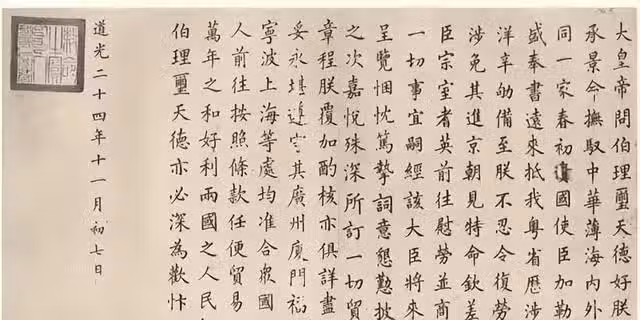 大皇帝問伯理璽天德好朕
承景命撫馭中華薄海內外
同一家春初國使臣加勒
盛奉書遠來抵我粵省歷涉
洋辛劬備至朕不忍令復勞
涉免其進京朝見特命欽差
臣宗室耆英前往慰勞並商
一切事宜嗣經該大臣將來
呈覽悃忱篤摯詞意懇懃披
之次嘉悅殊深所訂一切貿
章程朕覆加酌核亦俱詳盡
妥永堪遵守其廣州廈門福
寧波上海等處均准合衆國
人前往按照條款任便貿易
萬年之和好利兩國之人民
伯理璽天德亦必深為歡忭
道光二十四年十一月初七日